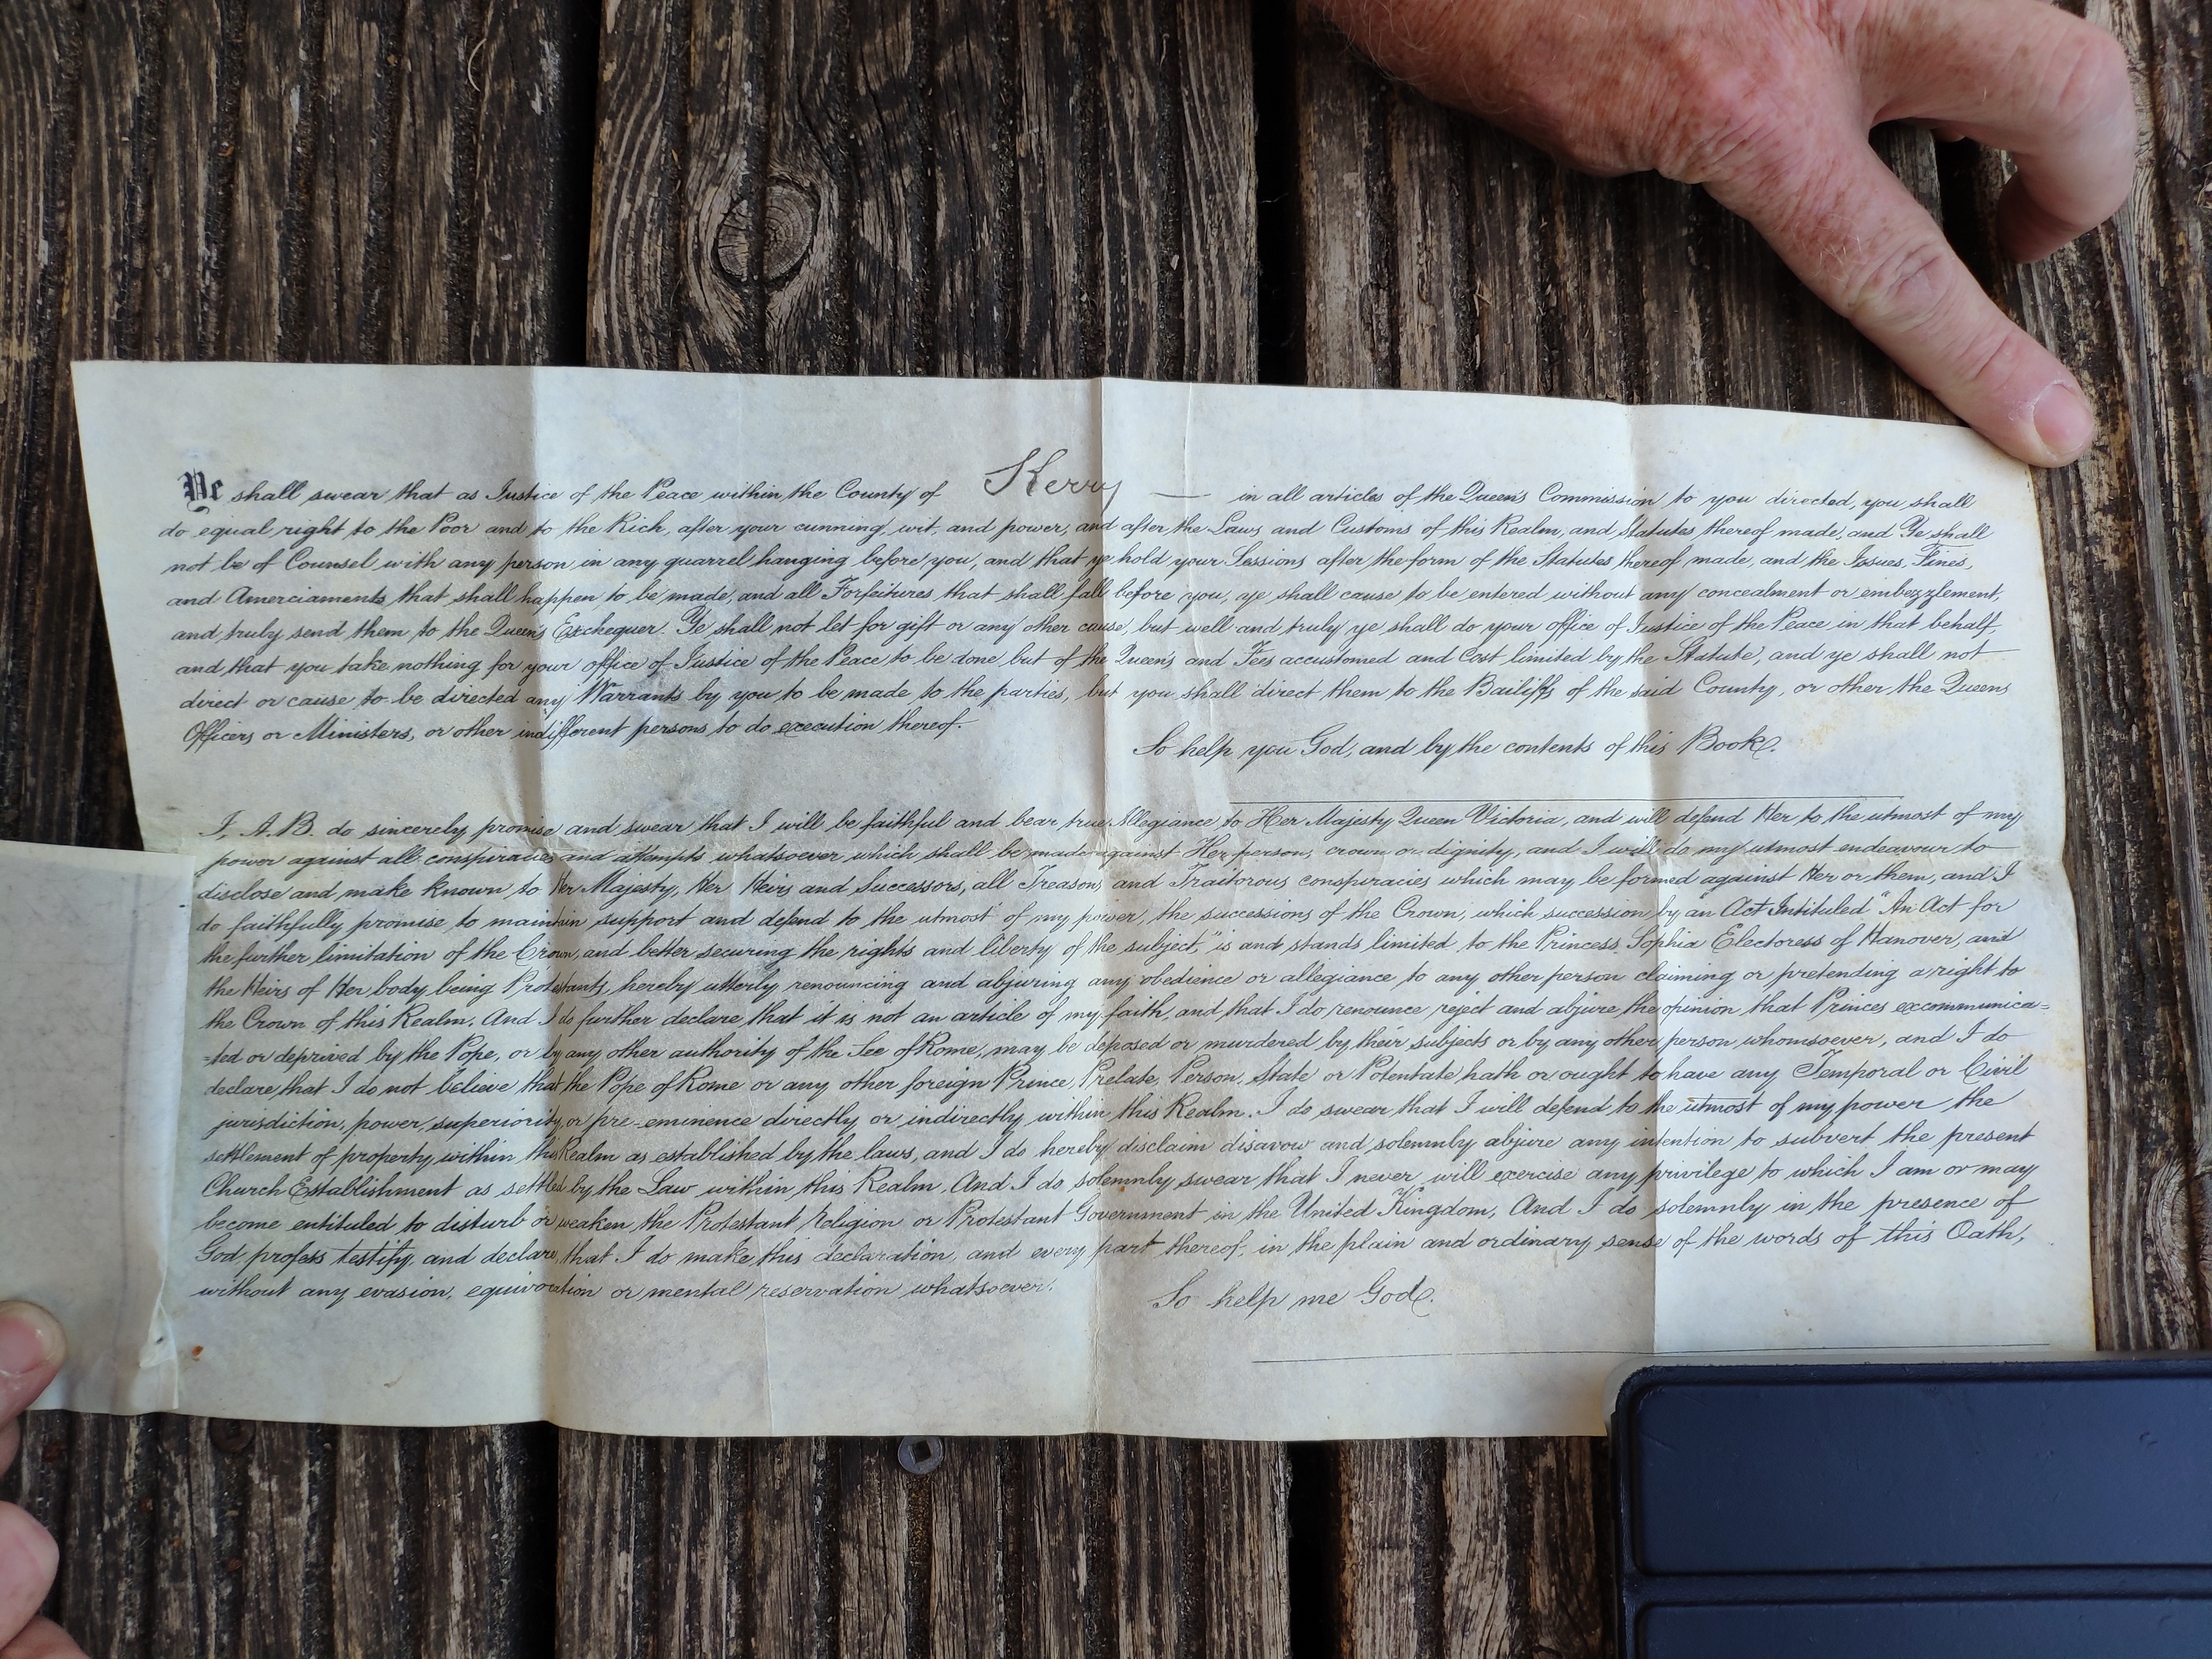 Ye shall swear that as Justice of the Peace within the County of Kerry — in all articles of the Queen's Commission to you directed, you shall
do equal right to the Poor and to the Rich, after your cunning, wit, and power, and after the Laws and Customs of this Realm, and Statutes thereof made, and Ye shall
not be of Counsel with any person in any quarrel hanging before you, and that ye hold your Sessions after the form of the Statutes thereof made, and the Issues, Fines,
and Amerciaments that shall happen to be made, and all Forfeitures that shall fall before you, ye shall cause to be entered without any concealment or embezzlement,
and truly send them to the Queen's Exchequer. Ye shall not let for gift or any other cause, but well and truly ye shall do your office of Justice of the Peace in that behalf,
and that you take nothing for your office of Justice of the Peace to be done but of the Queen's and Fees accustomed and Cost limited by the Statute, and ye shall not
direct or cause to be directed any Warrants by you to be made to the parties, but you shall direct them to the Bailiffs of the said County, or other the Queens
Officers or Ministers, or other indifferent persons to do execution thereof.
So help you God, and by the contents of this Book.
I, A.B. do sincerely promise and swear that I will be faithful and bear true Allegiance to Her Majesty Queen Victoria, and will defend Her to the utmost of my
power against all conspiracies and attempts whatsoever which shall be made against Her person, crown or dignity, and I will do my utmost endeavour to
disclose and make known to Her Majesty, Her Heirs and Successors, all Treasons and Traitorous conspiracies which may be formed against Her or them, and I
do faithfully promise to maintain support and defend to the utmost of my power, the successions of the Crown, which succession by an Act Intituled "An Act for
the further limitation of the Crown and better securing the rights and liberty of the subject," is and stands limited to the Princess Sophia Electoress of Hanover, and
the Heirs of Her body being Protestants, hereby utterly renouncing and abjuring any obedience or allegiance to any other person claiming or pretending a right to
the Crown of this Realm. And I do further declare that it is not an article of my faith, and that I do renounce reject and abjure the opinion that Princes excommunica=
=ted or deprived by the Pope, or by any other authority of the See of Rome, may be deposed or murdered by their subjects or by any other person whomsoever, and I do
declare that I do not believe that the Pope of Rome or any other foreign Prince, Prelate, Person, State or Potentate hath or ought to have any Temporal or Civil
jurisdiction, power, superiority or pre-eminence directly or indirectly within this Realm. I do swear that I will defend to the utmost of my power the
settlement of property within this Realm as established by the laws, and I do hereby disclaim disavow and solemnly abjure any intention to subvert the present
Church Establishment as settled by the Law within this Realm. And I do solemnly swear that I never will exercise any privilege to which I am or may
become entituled to disturb or weaken the Protestant religion or Protestant Government in the United Kingdom, And I do solemnly in the presence of
God profess testify, and declare, that I do make this declaration, and every part thereof, in the plain and ordinary sense of the words of this Oath,
without any evasion, equivocation or mental reservation whatsoever.
So help me God.